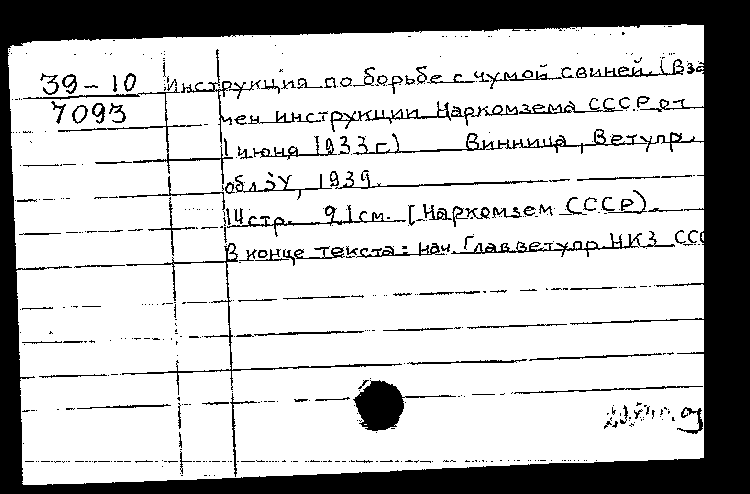 39-10
7093
Инструкция по борьбе с чумой свиней. (Вза
мен инструкции Наркомзема СССР от
1 июня 1933 г.) Винница, Ветупр.
облЗУ, 1939.
14 стр. 21 см. [Наркомзем СССР).
В конце текста: нач. Главветупр. НКЗ ССС